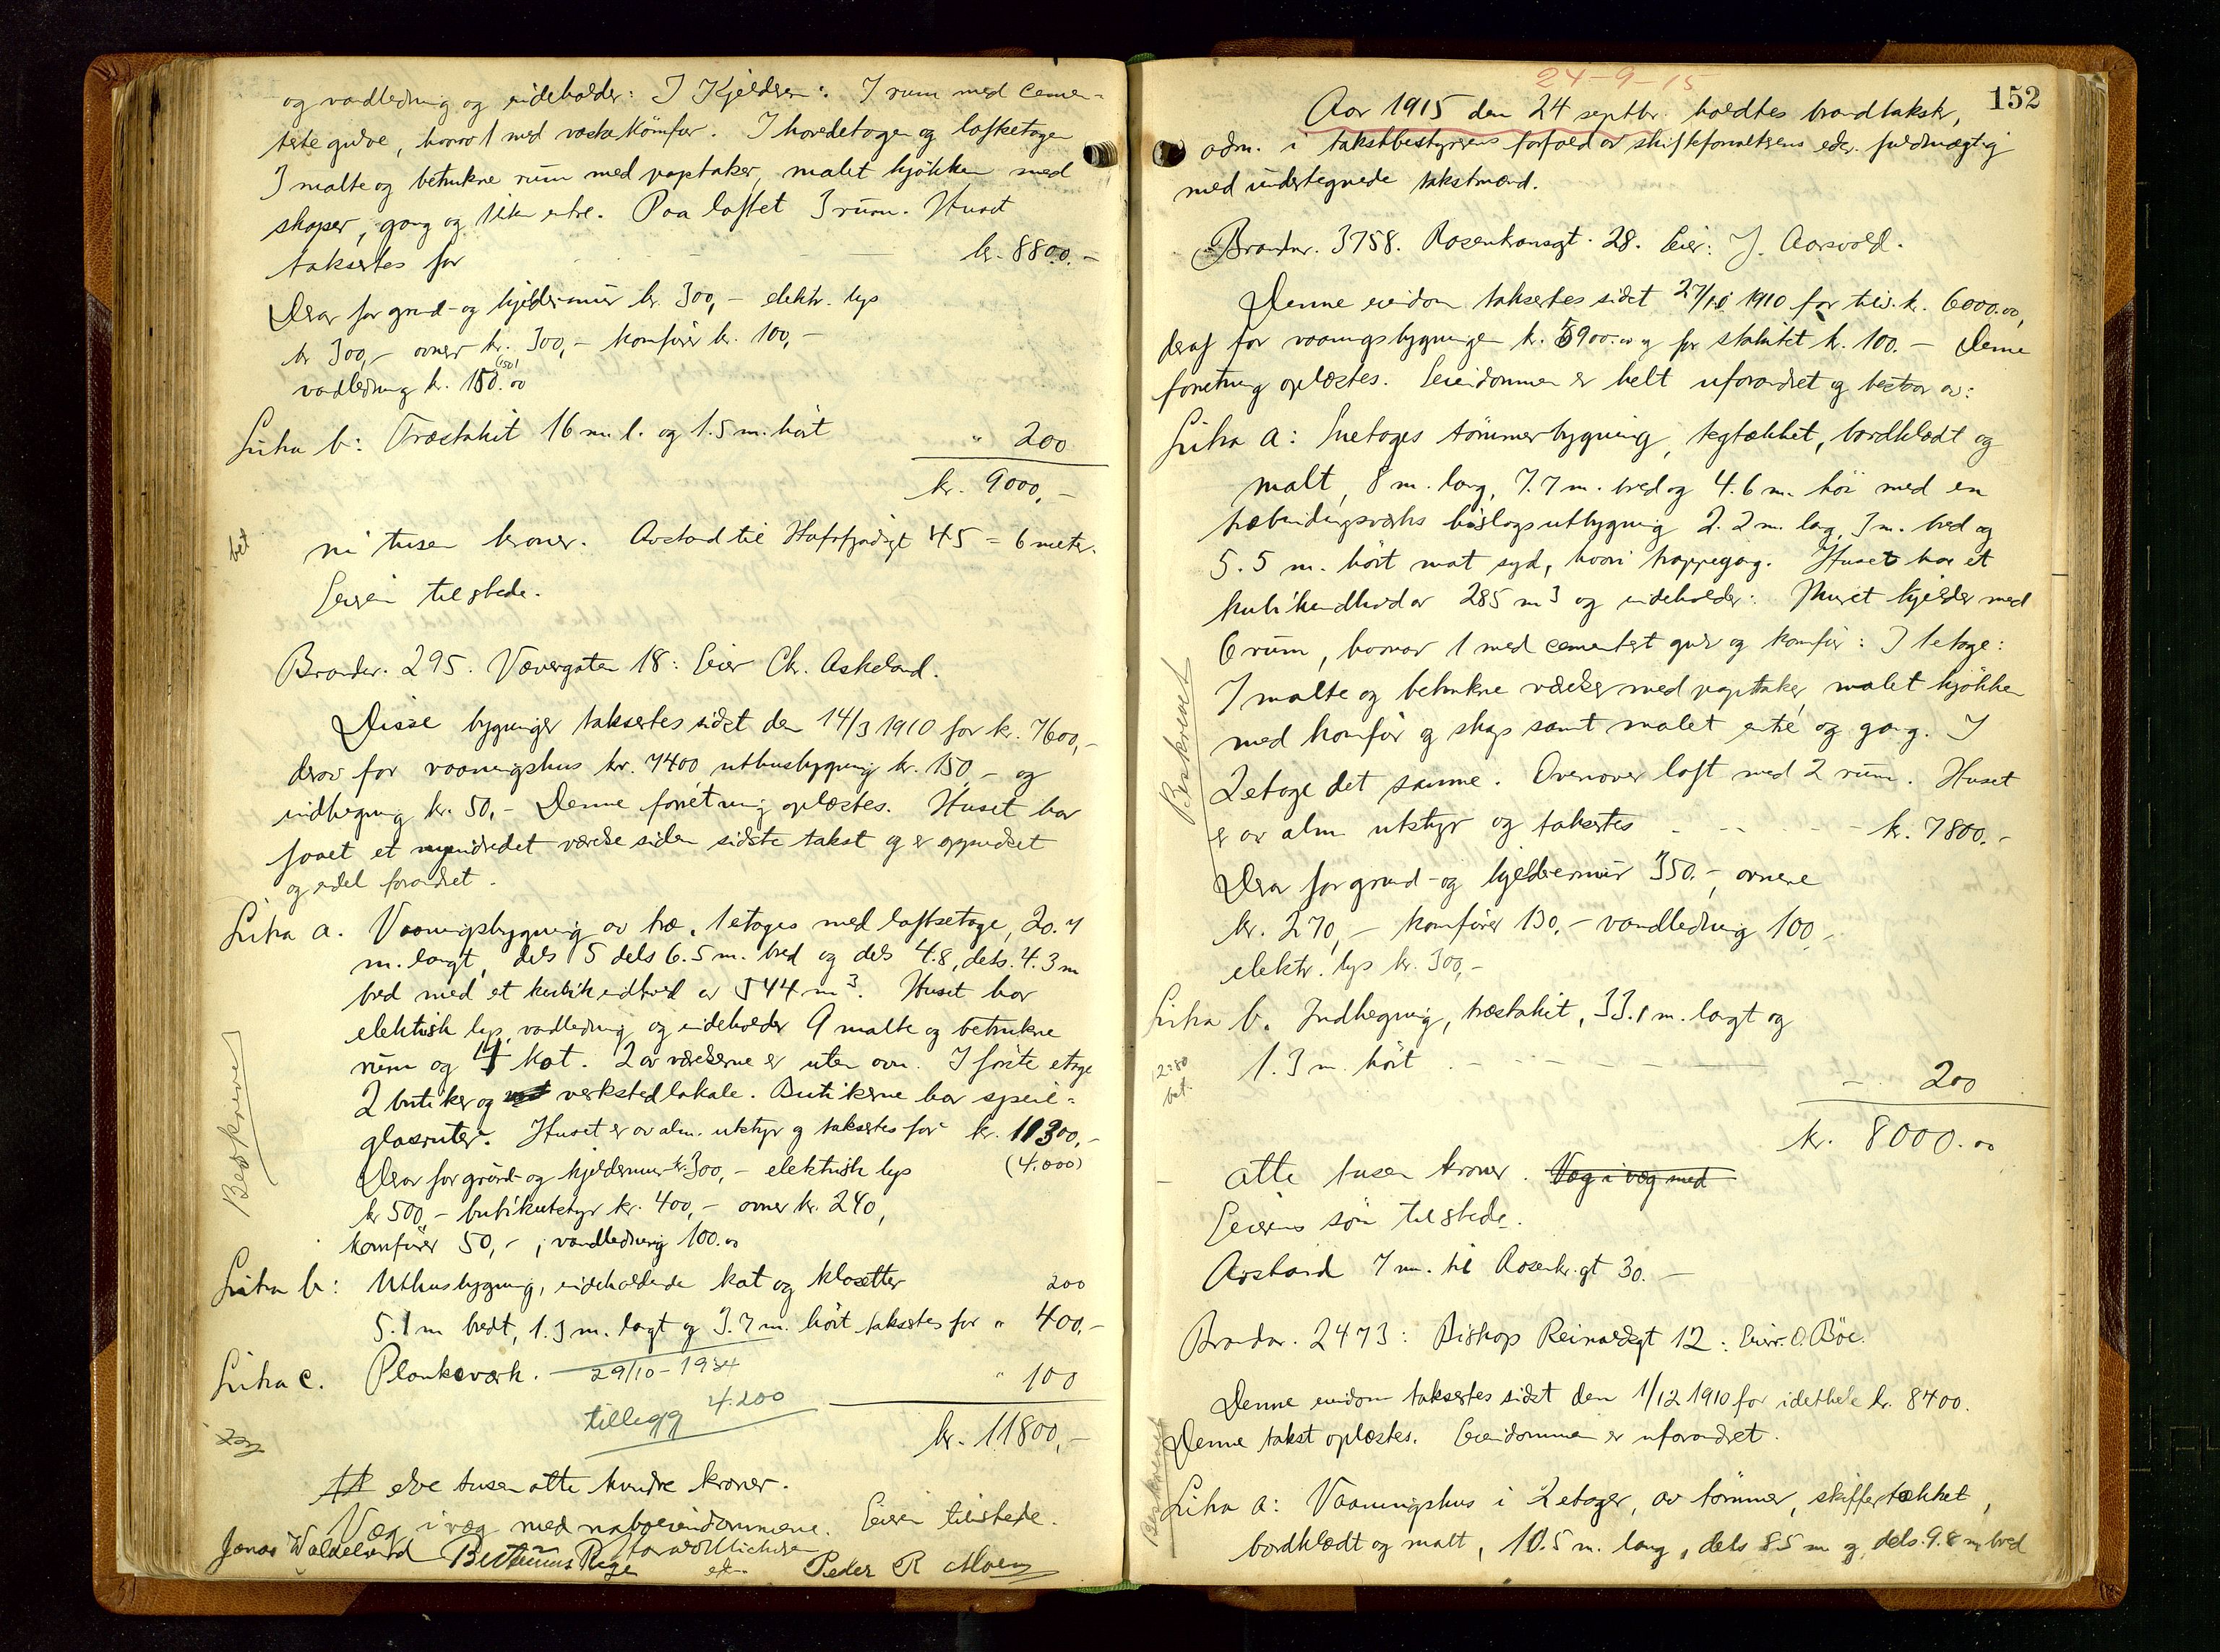 og vandledning og indeholder: I Kjelderen: 7 rum med cemen-
terte gulve, hvorav 1 med vaskekomfur. I hovedetagen og loftsetagen
3 malte og betrukne rum med paptaker, malet kjøkken med
skaper, gang og liten entre. Paa loftet 3 rum. Huset
taksertes for kr. 8800.-
Derav for grund- og kjeldermur kr. 300,- elektr. lys
kr 300,- ovner kr. 300,- komfurer kr. 100,-
vandledning kr. 150.00
Litra b: Træstakit 16 m. l. og 1.5 m. høit " 200
kr. 9000,-
bet
ni tusen kroner. Avstand til Hafrsfjordsgt 45 = 6 meter.
Eieren tilstede.
Brandnr. 295. Vævergaten 18: Eier Chr. Askeland.
Disse bygninger taksertes sidst den 14/3 1910 for kr. 7600,-
derav for vaaningshus kr. 7400 uthusbygning kr. 150,- og
indhegning kr. 50,- Denne forretning oplæstes. Huset har
faaet et nyindredet værelse siden sidste takst og er oppudset
og endel forandret.
Litra a. Vaaningsbygning av træ, 1 etages med loftsetage, 20.4
m. langt, dels 5 dels 6.5 m. bred og dels 4.8, dels 4.3 m
bred med et kubikindhold av 544 m3. Huset har
elektrisk lys, vandledning og indeholder 9 malte og betrukne
rum og 4 kot. 2 av værelserne er uten ovn. I første etage
2 butiker og verkstedlokale. Butikerne har speil-
glasruter. Huset er av alm. utstyr og taksertes for kr. 11300,-
Derav for grund- og kjeldermur kr. 300,- elektrisk lys (4.000)
kr 500,- butikutstyr kr. 400,- ovner kr. 240,
komfurer 50,-, vandledning 100.00
Beskrevet
Litra b: Uthusbygning, indeholdende kot og klosetter 200
5.1 m bredt, 1.3 m. langt og 3.7 m. høit taksertes for " 400,-
Litra c. Plankeværk. 29/10-1934 " 100
tillegg 4.200
kr. 11800,-
elve tusen atte hundre kroner.
Væg i væg med naboeiendommene. Eieren tilstede.
Jonas Waldeland Peder R Moen
24-9-15
152
Aar 1915 den 24 septbr. holdtes brandtakst,
adm. i takstbestyrerens forfald av skifteforvalterens edsv. fuldmægtig
med undertegnede takstmænd.
Brandnr. 3758. Rosenkransgt. 28. Eier: J. Aarsvold.
Denne eiendom taksertes sidst 27/10 1910 for tils. kr. 6000.00,
deraf for vaaningsbygningen kr. 5900.00 og for stakitet kr. 100.- Denne
forretning oplæstes. Eiendommen er helt uforandret og bestaar av:
Litra a: Enetages tømmerbygning, tegltækket, bordklædt og
malt, 8 m. lang, 7.7 m. bred og 4.6 m. høi med en
træbindingsværks bislagsutbygning 2.2 m. lang, 3 m. bred og
5.5 m. høit mot syd, hvori trappegang. Huset har et
kubikindhold av 285 m3 og indeholder: Muret kjelder med
6 rum, hvorav 1 med cementert gulv og komfur: I 1 etage:
3 malte og betrukne værelser med paptaker, malet kjøkken
med komfur og skap samt malet entré og gang. I
2 etage det samme. Ovenover loft med 2 rum. Huset
er av alm utstyr og taksertes kr. 7800.-
Beskrevet
Derav for grund- og kjeldermur 350.-, ovnene
kr. 270,- komfurer 130,- vandledning 100,-
elektr. lys kr. 300,-
Litra b. Indhegning, træstakit, 33.1 m. langt og
1.3 m. høit - 200
12.80
bet.
kr. 8000.00
atte tusen kroner. Væg i væg med
Eierens søn tilstede.
Avstand 7 m. til Rosenkr.gt 30.-
Brandnr. 2473: Biskop Reinaldsgt 12: Eier: O. Böe.
Denne eiendom taksertes sidst den 1/12 1910 for idethele kr. 8400.
Denne takst oplæstes. Eiendommen er uforandret.
Beskrevet
Litra a: Vaaningshus i 2 etager, av tømmer, skiffertækket,
bordklædt og malt, 10.5 m. lang, dels 8.5 m og dels 9.8 m bred